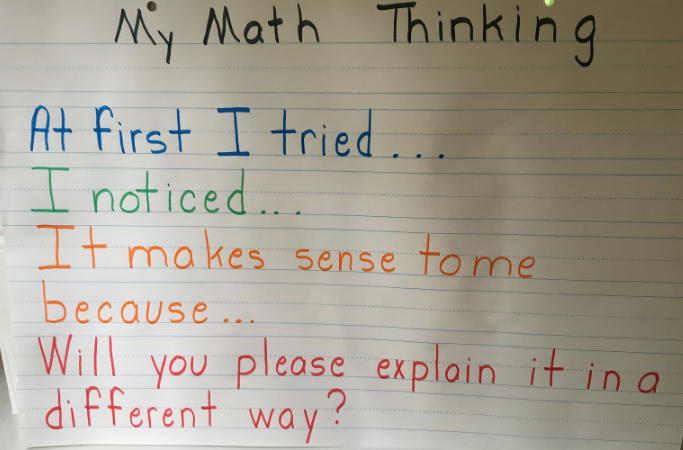 My Math Thinking
At first I tried...
I noticed...
It makes sense to me
because...
Will you please explain it in a
different way?